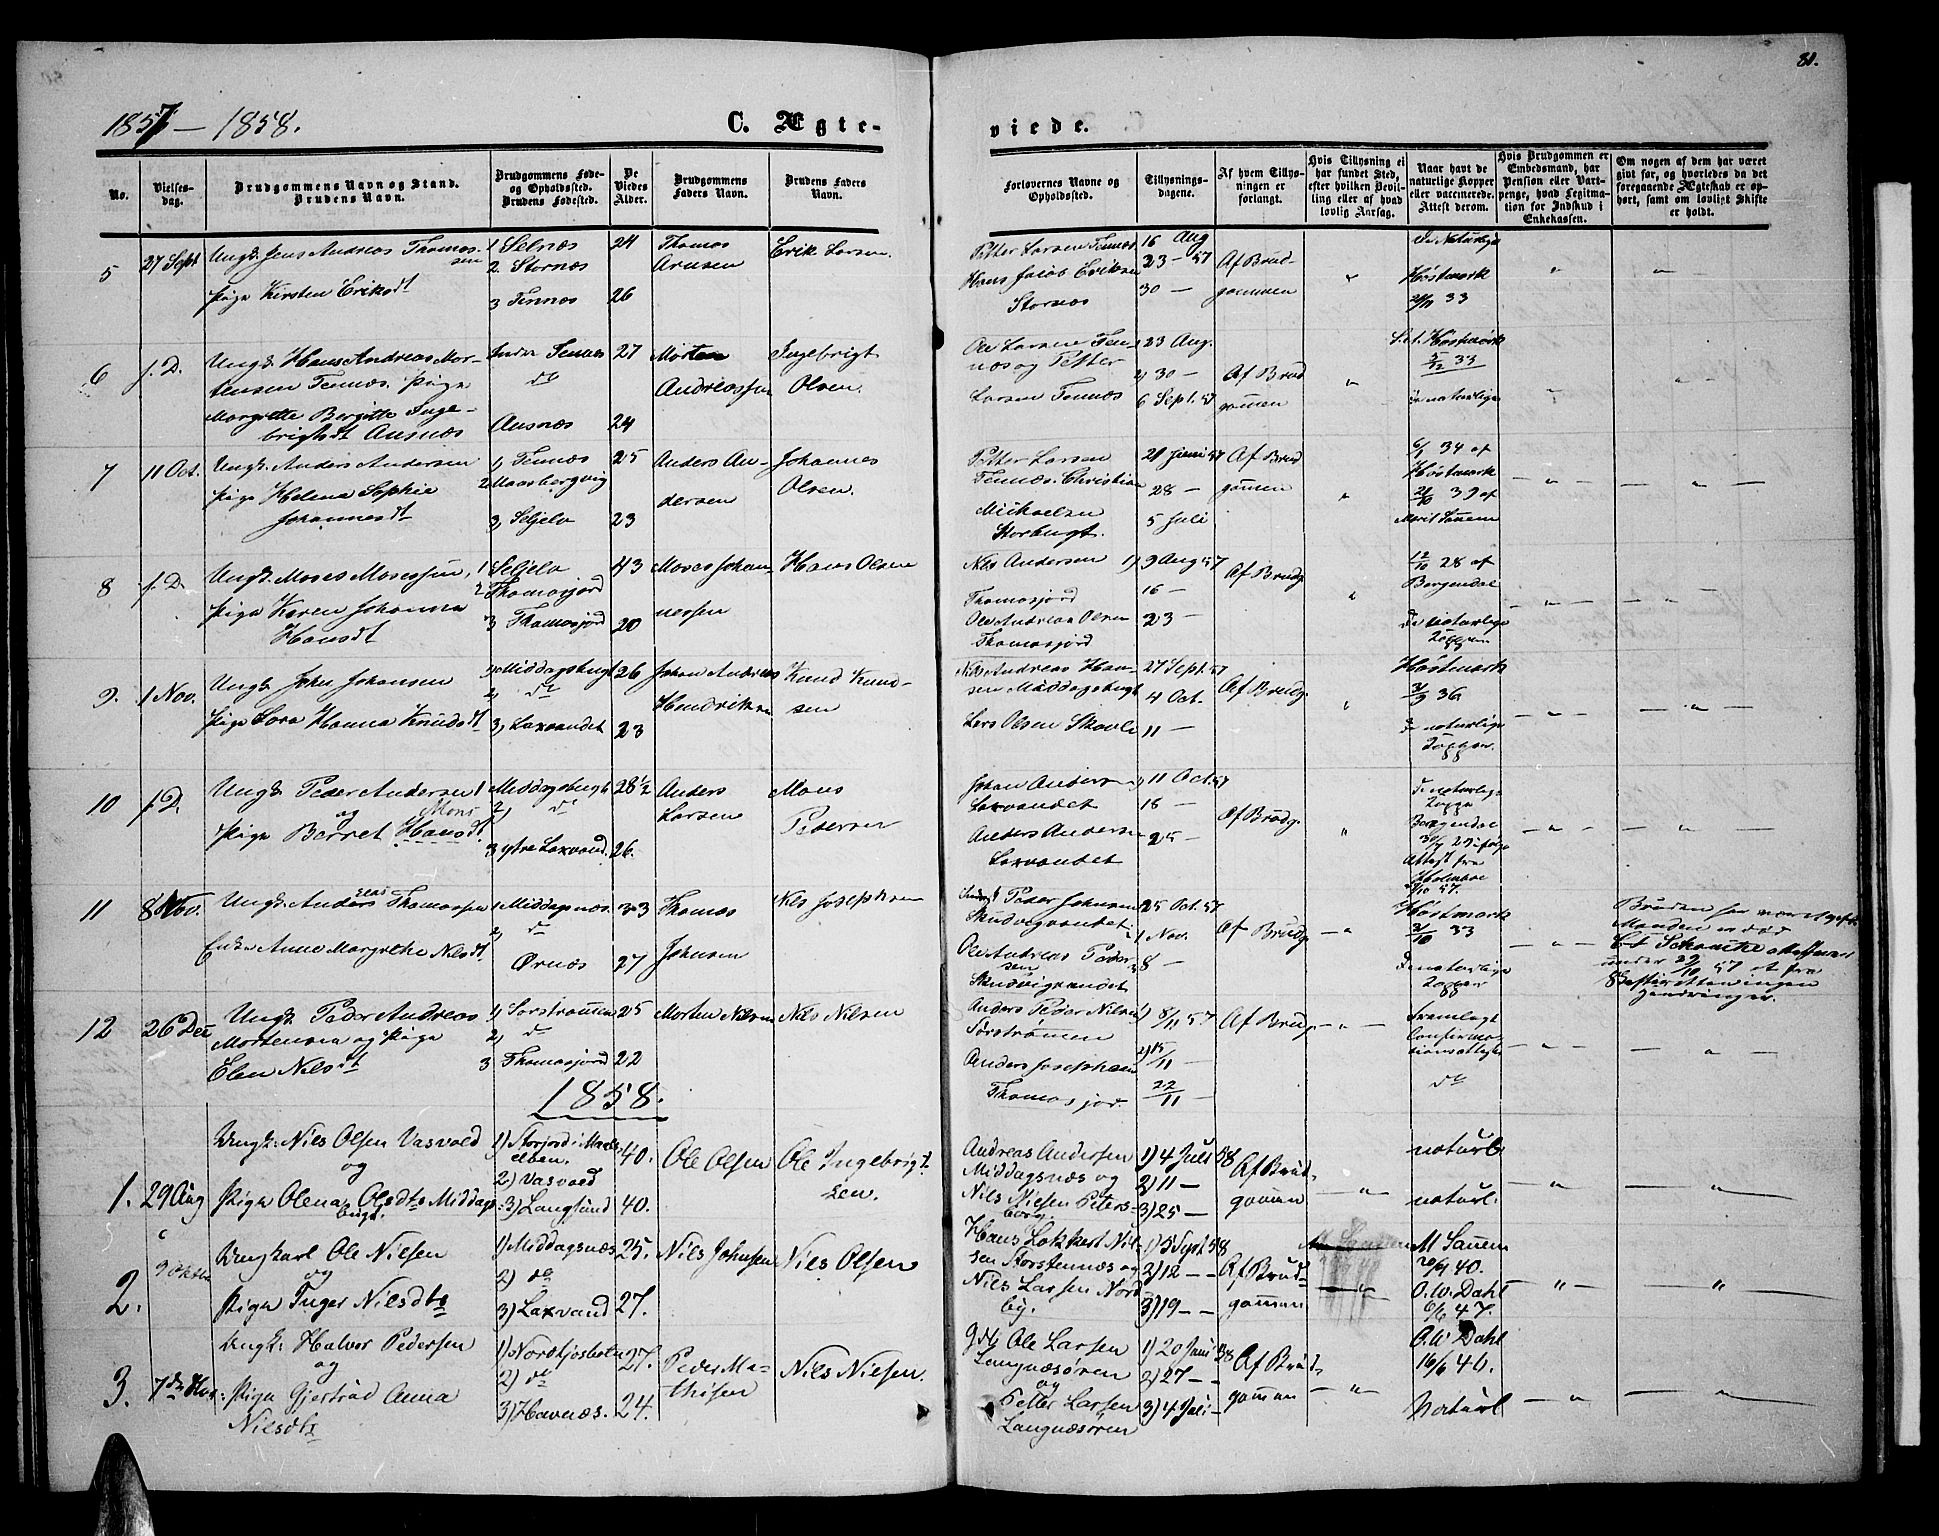 81.
1857 — 1858.
C. Ægte-
viede.
No.
Vielses-
dag.
Brudgommens Navn og Stand.
Brudens Navn.
Brudgommens Føde-
og Opholdssted.
Brudens Fødested.
De
Viedes
Alder.
Brudgommens
Faders Navn.
Brudens Faders
Navn.
Forlovernes Navne og
Opholdssted.
Tillysnings-
dagene.
Af hvem Tillys-
ningen er
forlangt.
Hvis Tillysning ei
har fundet Sted,
efter hvilken Bevil-
ling eller af hvad
lovlig Aarsag.
Naar havt de
naturlige Kopper
eller vaccinerede.
Attest derom.
Hvis Brudgommen er
Embedsmand, har
Pension eller Vart-
penge, hvad Legitima-
tion for Indskud i
Enkekassen.
Om nogen af dem har været
givt før, og hvorledes da det
foregaaende Ægteskab er op-
hørt, samt om lovligt Skifte
er holdt.
5 27 Sept Ungk. Jens Andreas Thomas-
sen
Pige Kirsten Eriksdt
1 Selnæs
2. Stornæs
3 Tennæs
24
26
Thomas
Arnsen
Erik Larsen
Petter Larsen Tennæs
Hans Jacob Eriksen
Stornæs
16 Aug
23 — 57
30 —
Af Brud-
gommen
De Naturlige
Høstmark
33
6 f. D. Ungk. Hans Andreas Mor-
tensen Tennæs. Pige
Margrethe Bergitte Inge-
brigtsdt Ansnæs
Indre Tennæs
do
Ansnæs
27
24
Morten
Andreassen
Ingebrigt
Olsen.
Ole Larsen Ten-
næs og Petter
Larsen Tennæs
23 Aug.
2) 30 —
6 Sept. 57
Af Brud
gommen
Høstmark
5/12 33
de naturlige
7 11 Oct. Ungk. Anders Andersen
Pige Helena Sophie
Johannesdt
1, Tennæs
2 Maasbergvig
3, Seljelv
25
23
Anders An-
dersen
Johannes
Olsen.
Petter Larsen
Tennæs. Christian
Mickelsen
Storbugt.
21 Juni 57
28 —
5 Juli
Af Brud
gommen
6/1 34 af
Høstmark
39 af
8 f. D. Ungk. Moses Mosessen,
Pige Karen Johanna
Hansdt
1 Seljelv
2 Thomasjord
3 Thomasjord
43
20
Moses Johan-
nessen
Hans Olsen
Nils Andersen
Thomasjord
Ole Andreas Olsen
Thomasjord
1) 9 Aug 57
16 —
23 —
Af Brudg.
12/10 28 af
Borgendal
De naturlige
Kopper
9. 1 Nov. Ungk. John Johansen
Pige Lova Hanna Knudsdt
1, Middagsbugt
2, do
3, Laxvandet
26
23
Johan Andreas
Hendriksen
Knud Knud-
sen
Nils Andreas Han-
sen Middagsbugt
Lars Olsen Skovli
27 Sept. 57
4 Oct.
11 —
Af Brudg.
Høstmark
3/9 36
De naturlige
Kopper.
10 f. D. Ungk. Peder Andersen
og
Mons
Pige Berret Hansdt
1 Middagsbugt
2) do
3 ytre Laxvand.
28 1/2
26.
Anders
Larsen
Mons
Pedersen
Johan Andersen
Laxvandet
Anders Andersen
Laxvandet
11 Oct. 57
18 —
25 —
Af Brudg.
De naturlige
Kopper
Borgendal
29 ifølge
Attest fra
Holmboe
57.
11 8 Nov. Ungk. Anders Thomassen
Enke Anne Margrethe Nilsdt.
1. Middagsnæs
2, do
Ørnæs
33
27
Thomas
Johnsen
Nils Josephsen
Peder Johnsen
Ole Andreas Peder-
sen
25 Oct. 57
1 Nov.
8 —
Af Brudg.
Høstmark
3/10 33
De naturlige
Kopper
Bruden har været gift.
Manden er død
under 29/10 57 at fra
12 26 Dec Ungk. Peder Andreas
Mortensen og Pige
Elen Nilsdt
1) Sørstrømmen
2) do
3 Thomasjord
25
22
Morten Nilsen
Nils Nilsen
Anders Peder Nilsen
Sørstrømmen
Anders Josephsen
Thomasjor.
1) 8/11 57
2) 15/11 —
22/11 —
Af Brudg.
Fremlagt
Confirma-
tionsattester
do
1858.
1. 29 Aug Ungk: Nils Olsen Vasvold
og
Pige Olena Olsdtr Middags-
bugt.
1) Storjord i Maals
elven.
2) Vasvold
3) Langsund
40.
40.
Ole Olsen
Ole Ingebrigt-
sen.
Andreas Andersen
Middagsnæs og
Nils Nielsen Peters-
borg.
1) 4 Juli 58
2) 11 —
3) 25 —
Af Brud-
gommen
naturl.
naturl.
2. 9 Oktbr Ungkarl Ole Nielsen
og
Pige Inger Nilsdtr
1) Middagsnæs
2) do
3) Laxvand
25.
27.
Nils Johnsen
Nils Olsen
Hans Lokkert Nil-
sen Storstennæs og
Nils Larsen Nord
by.
1) 5 Sept 58
2) 12 —
3) 19 —
Af Brud-
gommen
M Sauem
40.
O. W. Dahl
6/6 47.
3. 7de Nov: Ungk: Halvor Pedersen
og
Pige Gjertrud Anna
Nilsdtr
1) Nordkjosbotn
2) do
3) Havnæs.
27.
24.
Peder Ma-
thisen
Nils Nielsen.
Ole Larsen
Langnæsøren
og
Petter Larsen
Langnæsøren
1) 20 Juni 58
2) 27 —
3) 4 Juli
Af Brud-
gommen
O. W Dahl
16/6 40.
Naturl